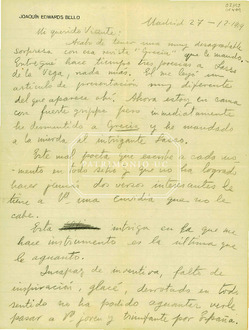 JOAQUÍN EDWARDS BELLO
Madrid 27 - 1919
Mi querido Vicente:
Acabo de tener una muy desagradable
sorpresa con esa revista "Grecia" que le mando.
Entregué hace tiempo tres poesías a Lasso
de la Vega, nada más. El me leyó un
artículo de presentación muy diferente
del que aparece ahí. Ahora estoy en cama
con fuerte gripe pero inmediatamente
he desmentido a Grecia y he mandado
a la mierda al intrigante Lasso.
Este mal poeta que escribe a cada
mento en todo sitio y que no ha logrado
hacer jamás dos versos interesantes le
tiene a Vd. una envidia que no le
cabe.
Esta intriga en la que me
hace instrumento es la última que
le aguanto.
Incapaz de inventiva, falto de
inspiración, glacé, derrotado en todo
sentido no ha podido aguantar verle
pasar a Vd. joven y triunfante por España.